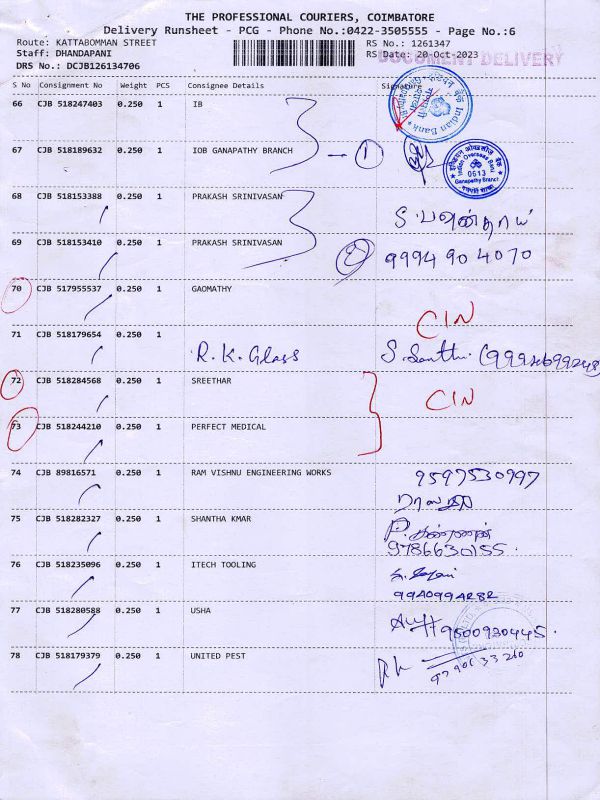 THE PROFESSIONAL COURIERS, COIMBATORE
Delivery Runsheet - PCG - Phone No.:0422-3505555 - Page No.:6
Route: KATTABOMMAN STREET RS No.: 1261347
Staff: DHANDAPANI RS Date: 20-Oct-2023
DOCUMENT DELIVERY
DRS No.: DCJB126134706
S No Consignment No Weight PCS Consignee Details Signature
66 CJB 518247403 0.250 1 IB
Indian Bank
67 CJB 518189632 0.250 1 IOB GANAPATHY BRANCH 1
Indian Overseas Bank
0613
Ganapathy Branch
68 CJB 518153388 0.250 1 PRAKASH SRINIVASAN
69 CJB 518153410 0.250 1 PRAKASH SRINIVASAN 2 9994904070
70 CJB 517955537 0.250 1 GAOMATHY CIN
71 CJB 518179654 0.250 1 R.K. Glass
72 CJB 518284568 0.250 1 SREETHAR CIN
73 CJB 518244210 0.250 1 PERFECT MEDICAL
74 CJB 89816571 0.250 1 RAM VISHNU ENGINEERING WORKS 9597530997
75 CJB 518282327 0.250 1 SHANTHA KMAR
9786630155.
76 CJB 518235096 0.250 1 ITECH TOOLING
77 CJB 518280588 0.250 1 USHA 9500930445.
78 CJB 518179379 0.250 1 UNITED PEST